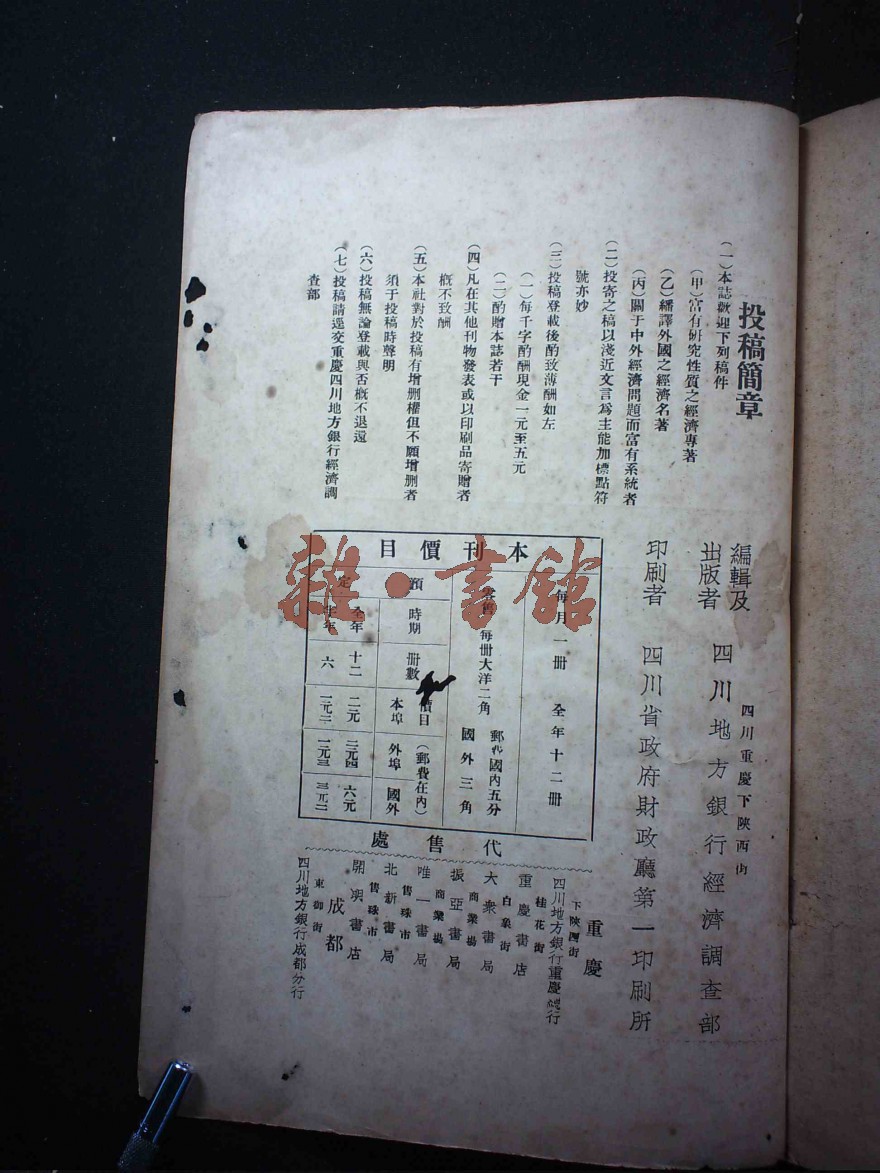 投稿簡章
（一）本誌歡迎下列稿件
（甲）富有研究性質之經濟專著
（乙）繙譯外國之經濟名著
（丙）關于中外經濟問題而富有系統者
（二）投寄之稿以淺近文言爲主能加標點符
號亦妙
（三）投稿登載後酌致薄酬如左
（一）每千字酌酬現金一元至五元
（二）酌贈本誌若干
（四）凡在其他刊物發表或以印刷品寄贈者
概不致酬
（五）本社對於投稿有增删權但不願增删者
須于投稿時聲明
（六）投稿無論登載與否概不退還
（七）投稿請逕交重慶四川地方銀行經濟調
查部
四川重慶下陝西街
編輯及
出版者
四川地方銀行經濟調查部
印刷者
四川省政府財政廳第一印刷所
本刊價目
每月一冊 全年十二冊
零售 每冊大洋二角
郵費國內五分
國外三角
預定
時期 冊數 價目（郵費在內）
本埠 外埠 國外
全年 十二 二元 二元四 六元
半年 六 一元二 一元三 三元二
代售處
重慶
下陝西街
四川地方銀行重慶總行
桂花街
重慶書店
白象街
大衆書局
商業場
振亞書局
商業場
唯一書局
售珠市
北新書局
售珠市
開明書店
成都
東御街
四川地方銀行成都分行
雜·書館